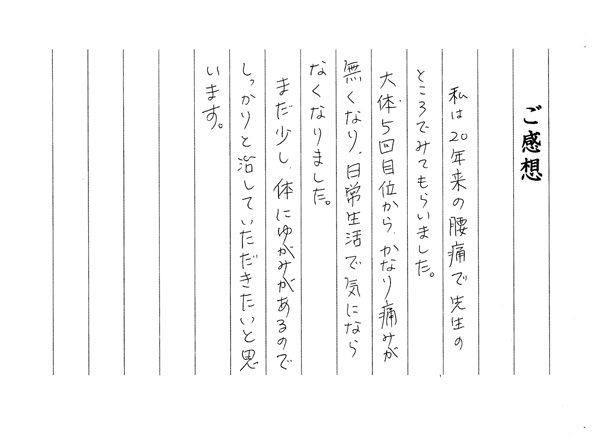 ご感想
私は20年来の腰痛で先生の
ところでみてもらいました。
大体5回目位から、かなり痛みが
無くなり、日常生活で気になら
なくなりました。
まだ少し、体にゆがみがあるので
しっかりと治していただきたいと思
います。